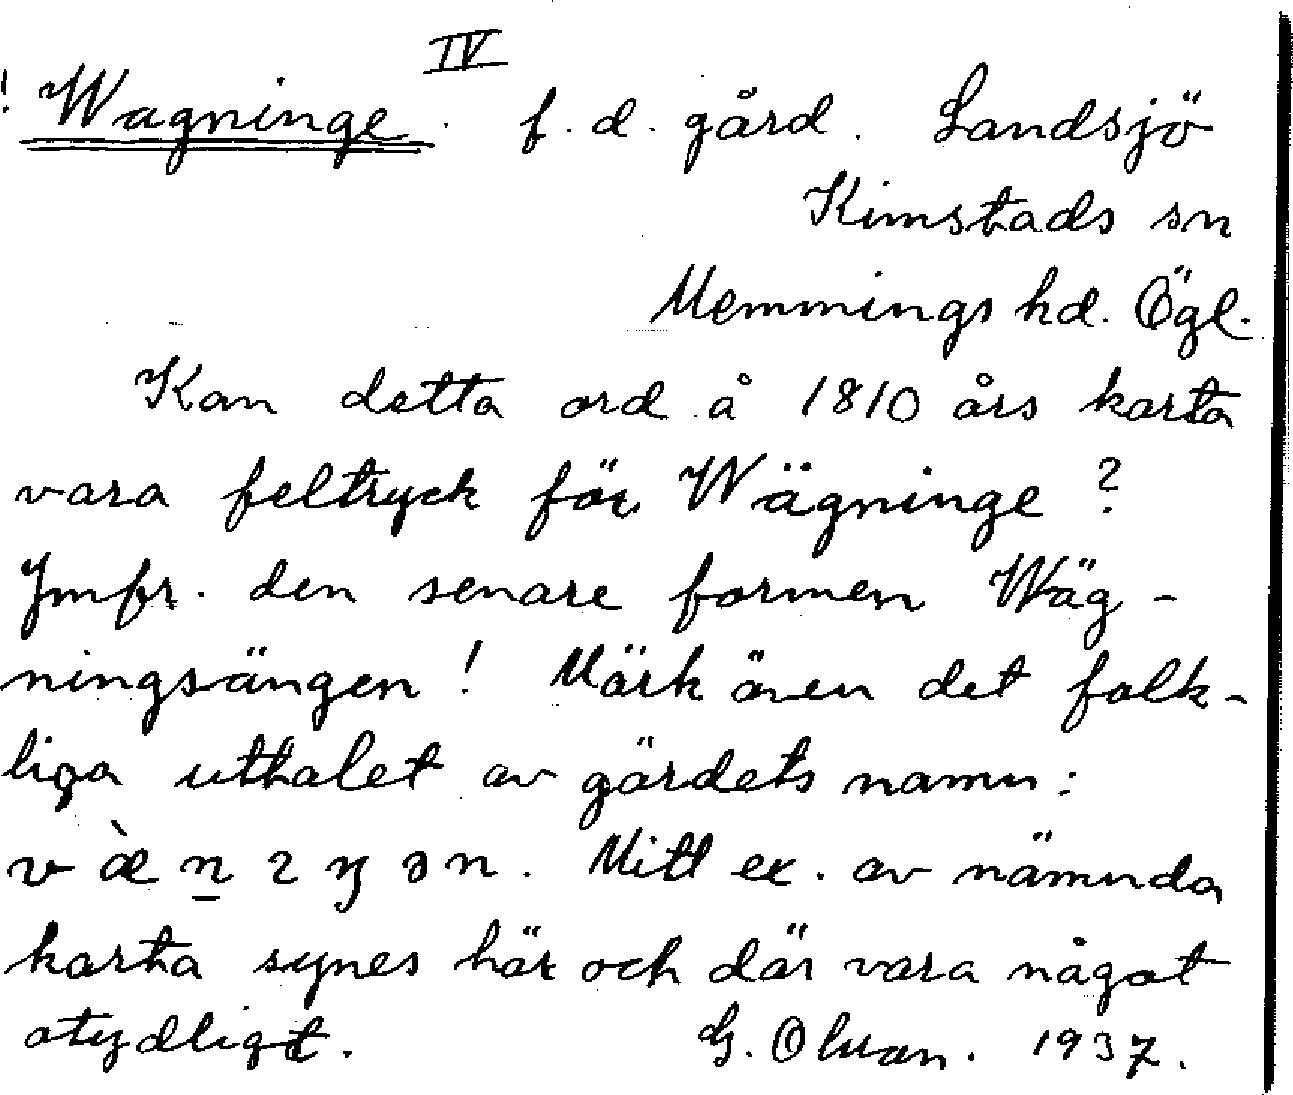 IV
! Wagninge . f. d. gård . Landsjö
Kimstads sn
Memmings hd. Ögl.
Kan detta ord å 1810 års karta
vara feltryck för Wägninge ?
Jmfr. den senare formen Wäg-
ningsängen ! Märk även det folk-
liga utthalet av gärdets namn :
Mitt ex. av nämnda
karta synes här och där vara något
otydligt. G. 1937.